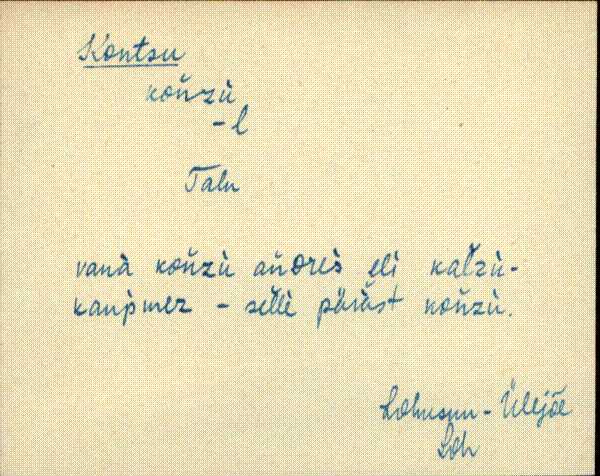 Kontsu
koňzù
-l
Talu
vanà koňzù aňdrès eli kaľzù-
kaup̀mez - sellè päräst koňzù.
Lohusuu - Ülejõe
Loh